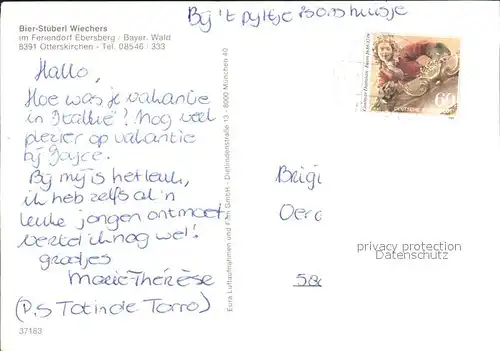 Bij 't pijltje is ons huisje
Bier-Stüberl Wiechers
im Feriendorf Ebersberg / Bayer. Wald
8391 Otterskirchen - Tel. 08546 / 333
Hallo,
Hoe was je vakantie
in Itallië? Nog veel
plezier op vakantie
bij Joyce.
Bij mij is het leuk,
ik heb zelfs al 'n
leuke jongen ontmoet,
vertel ik nog wel!
groetjes
Marie-Thérèse
(P.S Tot in de Torro)
37183
Eura Luftaufnahmen und Film GmbH - Dietlindenstraße 13 - 8000 München 40
60
Brigi
Oer
privacy protection
Datenschutz